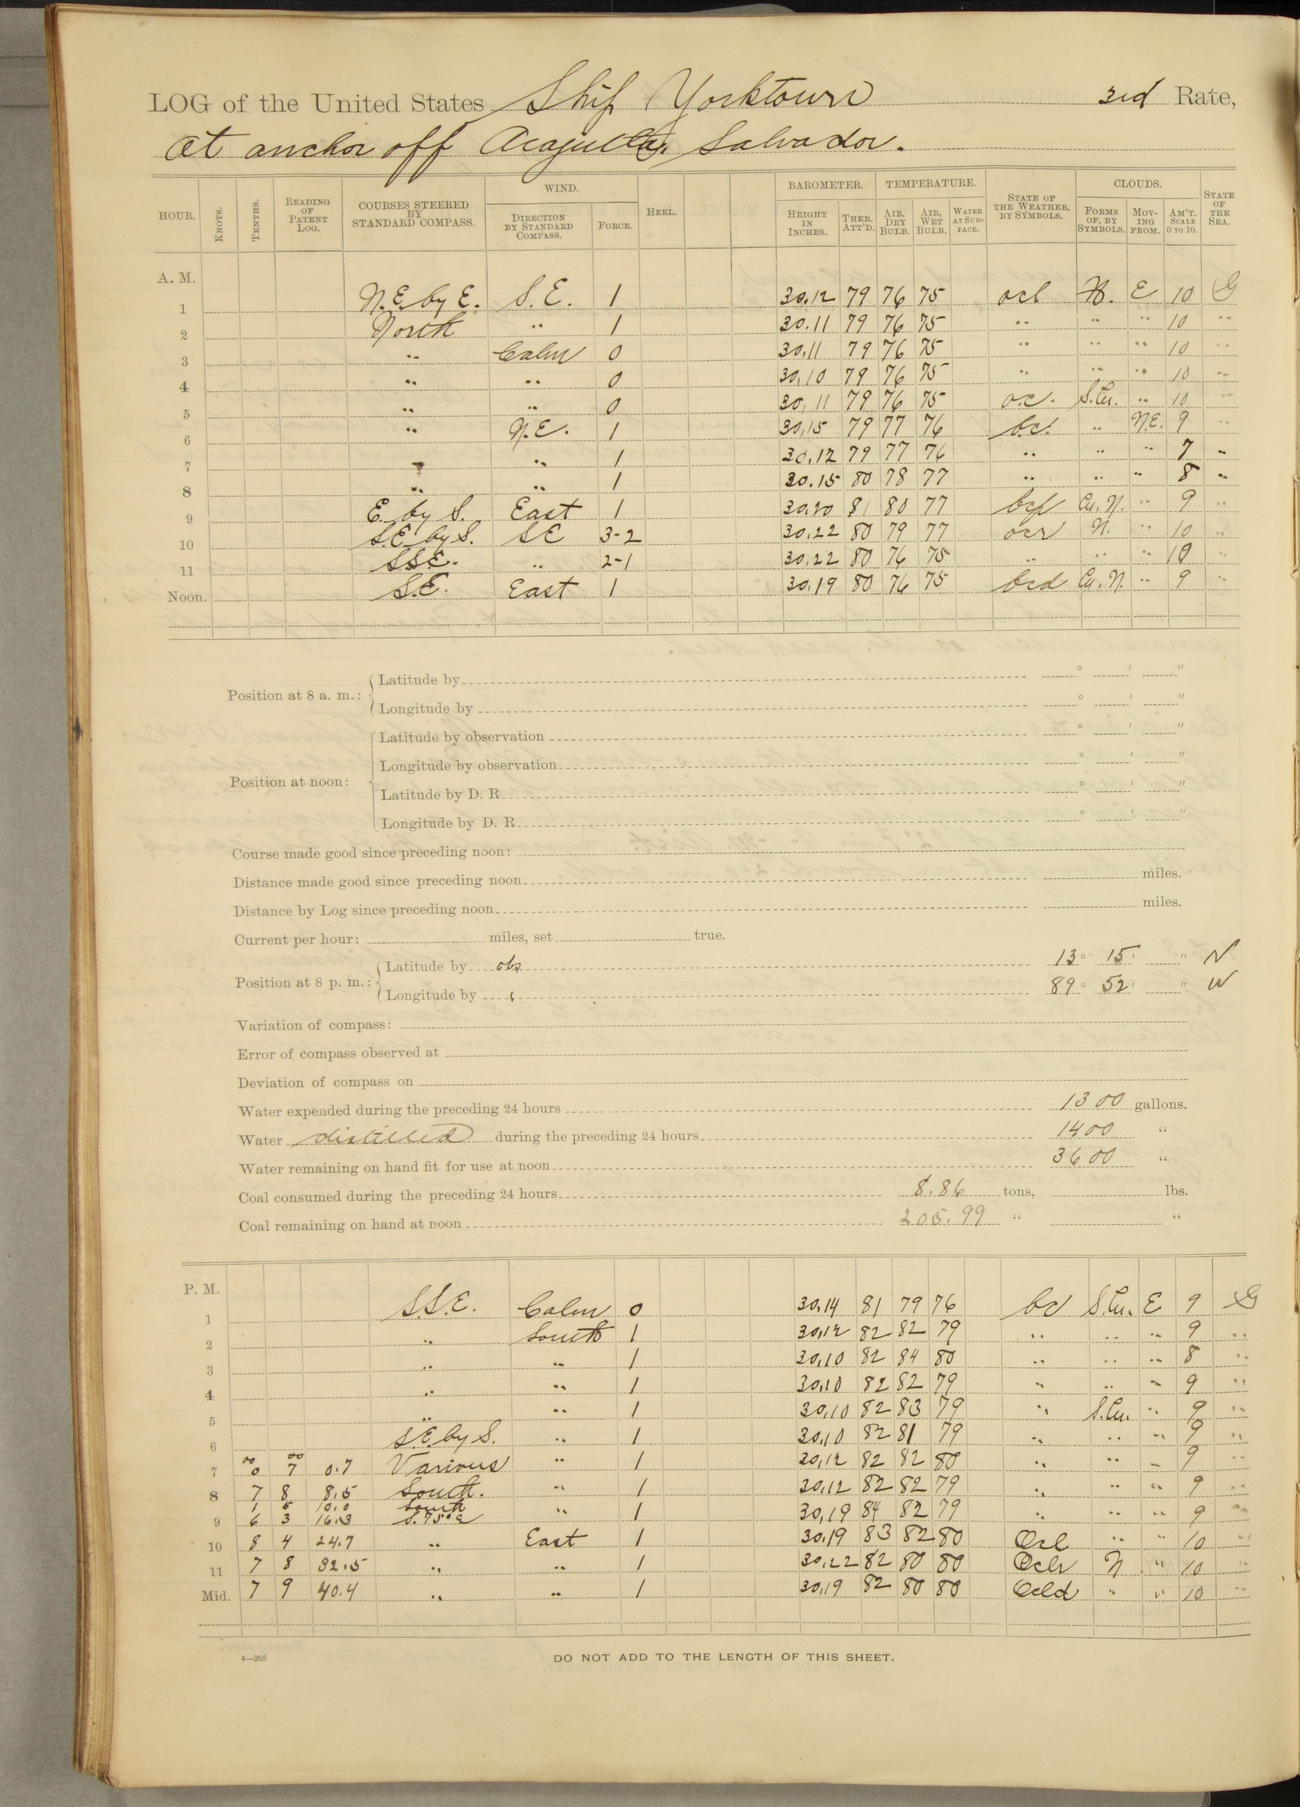 LOG of the United States Ship Yorktown 3rd Rate,
At anchor off Acajutla, Salvador.
HOUR. KNOTS. TENTHS. READING OF PATENT LOG. COURSES STEERED BY STANDARD COMPASS. WIND. DIRECTION BY STANDARD COMPASS. FORCE. HEEL. BAROMETER. HEIGHT IN INCHES. THER. ATT'D. TEMPERATURE. AIR, DRY BULB. AIR, WET BULB. WATER AT SURFACE. STATE OF THE WEATHER, BY SYMBOLS. CLOUDS. FORMS OF, BY SYMBOLS. MOVING FROM. AM'T. SCALE 0 TO 10. STATE OF THE SEA.
A. M.
1 N.E. by E. S.E. 1 30.12 79 76 75 ocl N. E 10 G
2 North " 1 30.11 79 76 75 " " " 10 "
3 " Calm 0 30.11 79 76 75 " " " 10 "
4 " " 0 30.10 79 76 75 " " " 10 "
5 " " 0 30.11 79 76 75 oc. S.Cu. " 10 "
6 " N.E. 1 30.15 79 77 76 bc. " N.E. 9 "
7 " " 1 30.12 79 77 76 " " " 7 "
8 " " 1 30.15 80 78 77 " " " 8 "
9 E. by S. East 1 30.20 81 80 77 bcp Cu.N. " 9 "
10 S.E. by S. SE 3-2 30.22 80 79 77 ocr N. " 10 "
11 SSE. " 2-1 30.22 80 76 75 " " " 10 "
Noon. S.E. East 1 30.19 80 76 75 bcd Cu.N. " 9 "
Position at 8 a. m.: Latitude by ° ' "
Longitude by ° ' "
Position at noon: Latitude by observation ° ' "
Longitude by observation ° ' "
Latitude by D. R. ° ' "
Longitude by D. R. ° ' "
Course made good since preceding noon:
Distance made good since preceding noon miles.
Distance by Log since preceding noon miles.
Current per hour: miles, set true.
Position at 8 p. m.: Latitude by obs 13° 15' " N
Longitude by " 89° 52' " W
Variation of compass:
Error of compass observed at
Deviation of compass on
Water expended during the preceding 24 hours 1300 gallons.
Water distilled during the preceding 24 hours 1400 "
Water remaining on hand fit for use at noon 3600 "
Coal consumed during the preceding 24 hours 8.86 tons, lbs.
Coal remaining on hand at noon 205.99 " "
P. M.
1 S.S.E. Calm 0 30.14 81 79 76 bc S.Cu. E 9 G
2 " South 1 30.12 82 82 79 " " " 9 "
3 " " 1 30.10 82 84 80 " " " 8 "
4 " " 1 30.10 82 82 79 " " " 9 "
5 " " 1 30.10 82 83 79 " S.Cu. " 9 "
6 S.E. by S. " 1 30.10 82 81 79 " " " 9 "
00 00
7 0 7 0.7 Various " 1 30.12 82 82 80 " " " 9 "
8 7 8 8.5 South. " 1 30.12 82 82 79 " " " 9 "
1 5 10.0 South
9 6 3 16.3 S.75°E " 1 30.19 84 82 79 " " " 9 "
10 8 4 24.7 " East 1 30.19 83 82 80 Ocl " " 10 "
11 7 8 32.5 " " 1 30.22 82 80 80 Oclr N " 10 "
Mid. 7 9 40.4 " " 1 30.19 82 80 80 Ocld " " 10 "
4—265 DO NOT ADD TO THE LENGTH OF THIS SHEET.